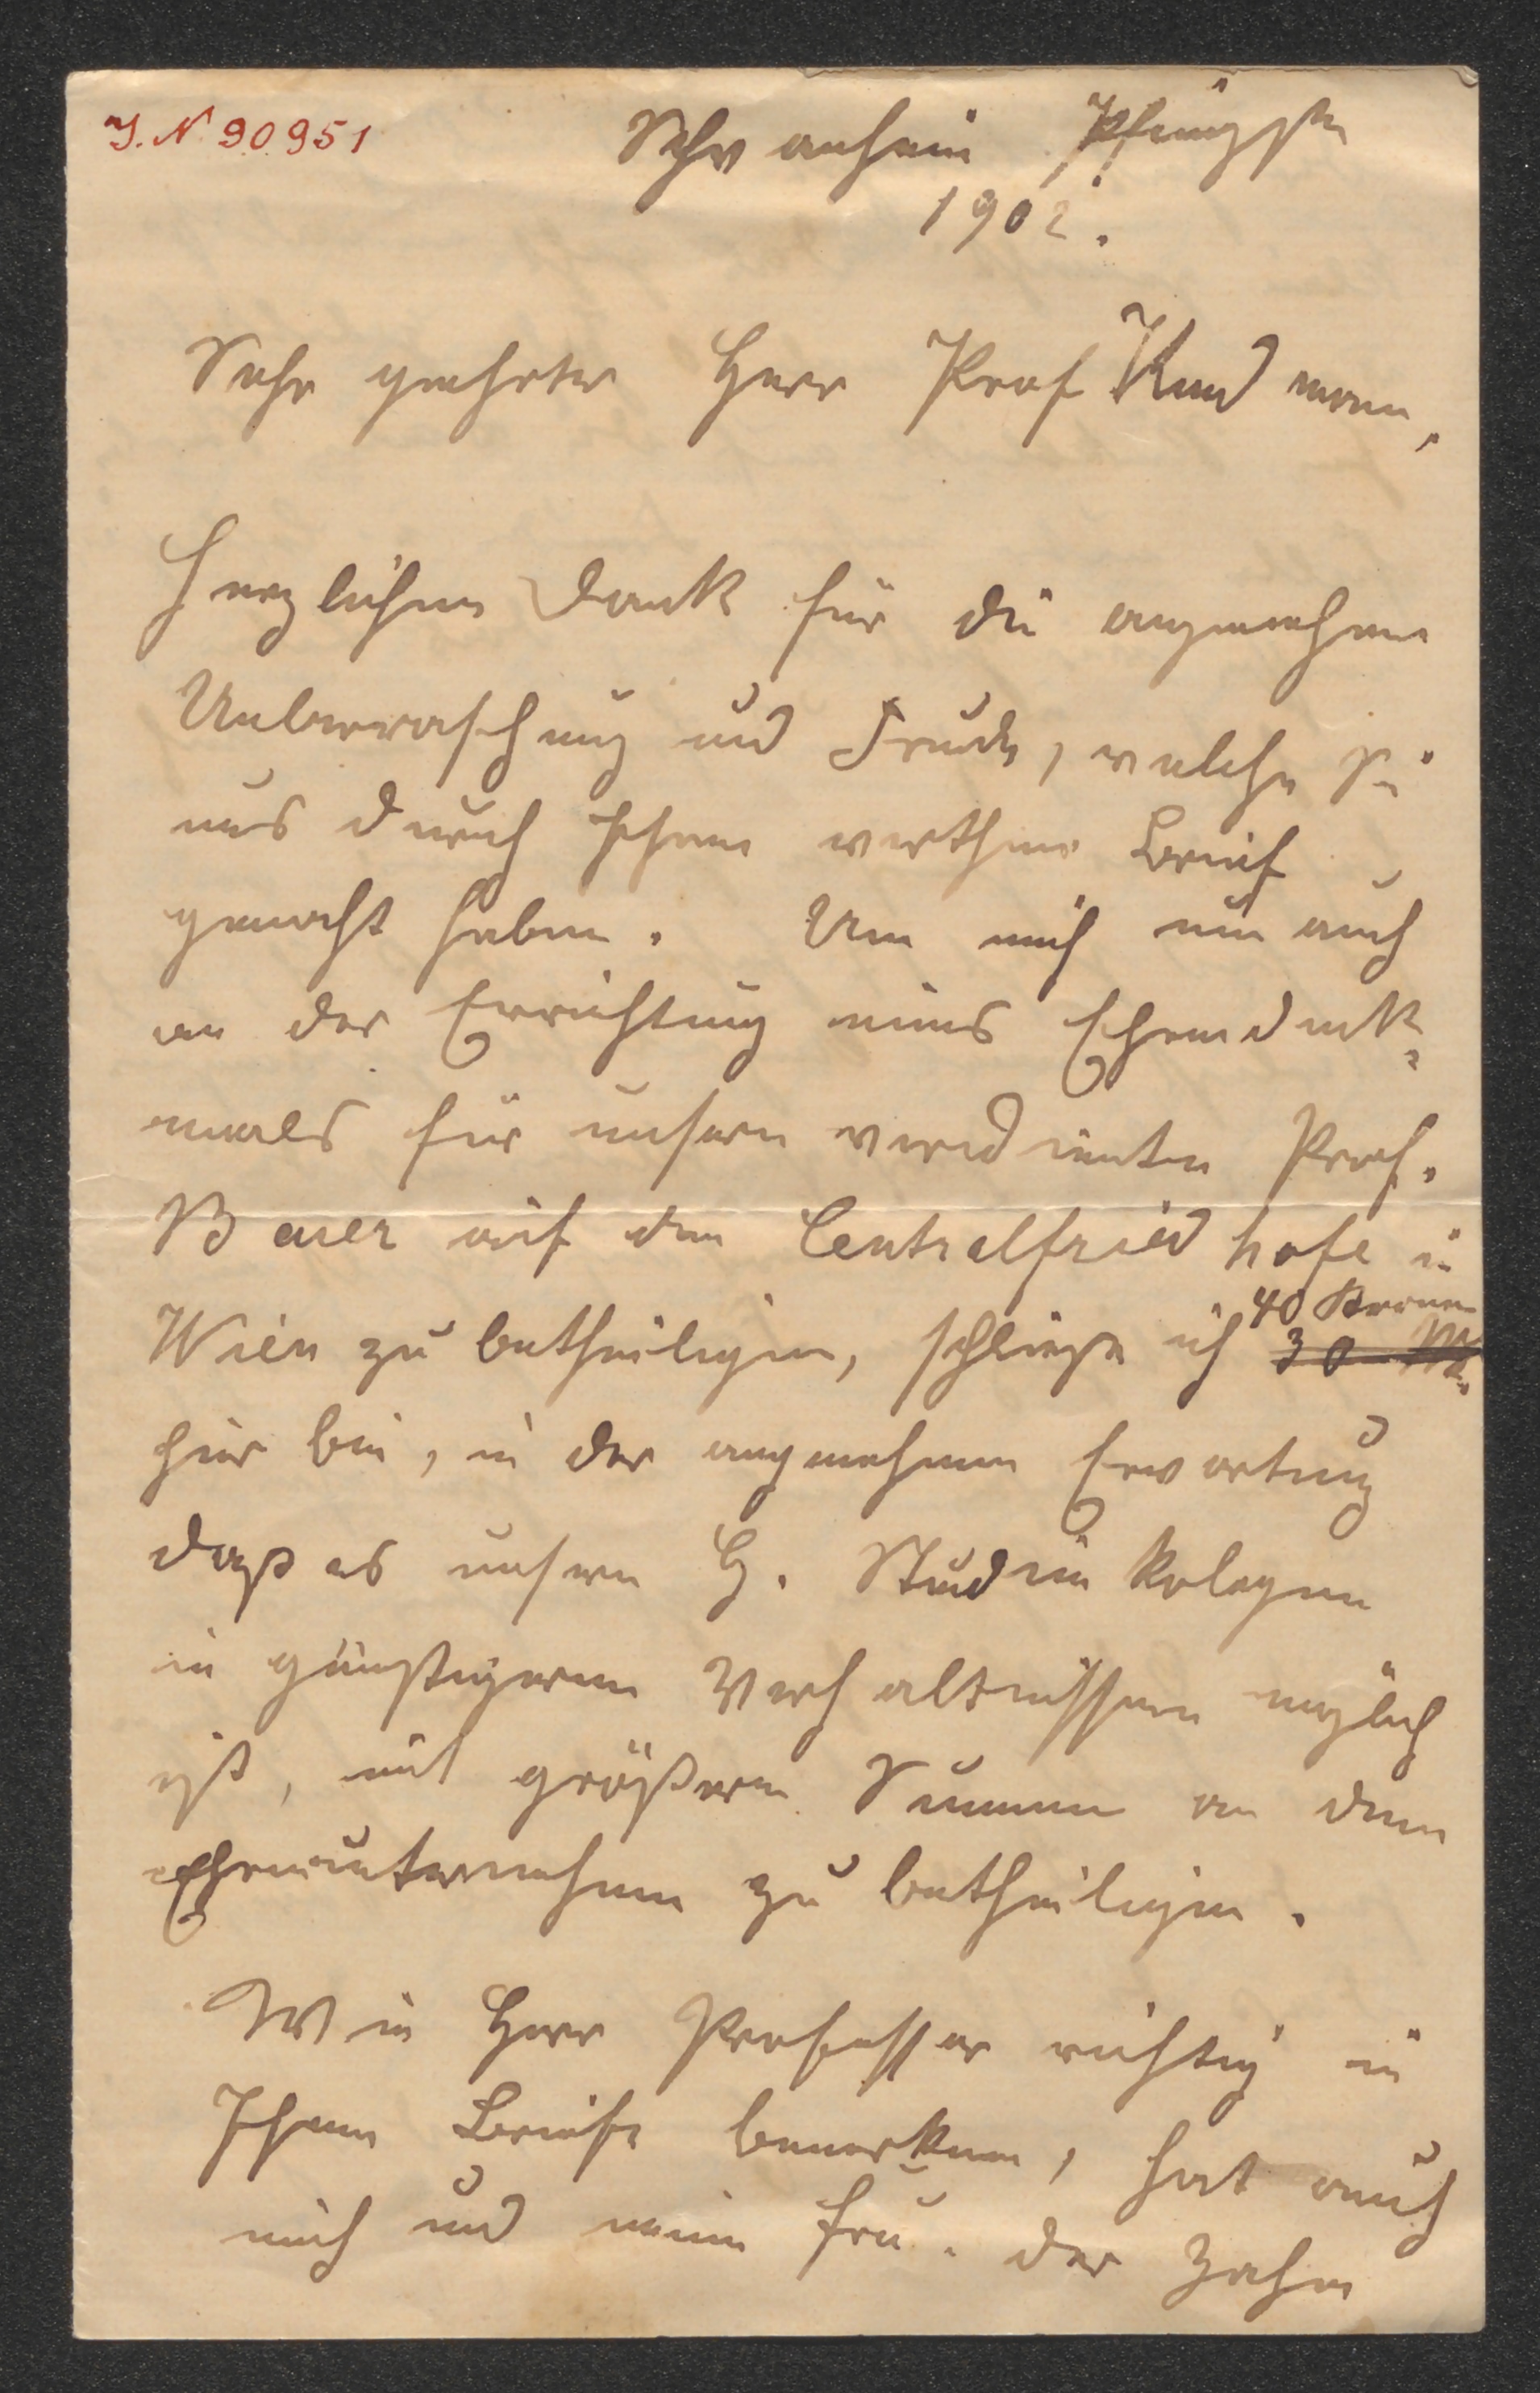 J. N. 90951
Schwanheim Pfingsten
1902.
Sehr geehrter Herr Prof Kundmann,
Herzlichen Dank für die angenehme
Ueberraschung und Freude, welche Sie
uns durch Ihren werthen Brief
gemacht haben. Um mich nun auch
an der Errichtung eines Ehrendenk-
mals für unsern verdienten Prof.
Bauer auf dem Centralfriedhofe in
Wien zu betheiligen, schließe ich 40 Kronen
30 Mk.
hier bei, in der angenehmen Erwartung
daß es unsern H. Studienkolegen
in günstigeren Verhaltnissen möglich
ist, mit größeren Summen an dem
Ehrenunternehmen zu betheiligen.
Wie Herr Professor richtig in
Ihrem Briefe bemerken, hat auch
mich und meine Frau der Zahn